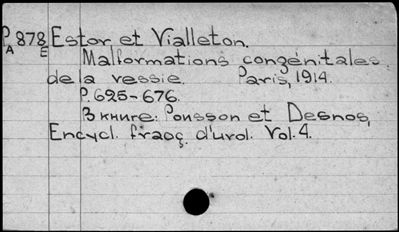 P 878 Estor et Vialleton.
A E Malformations congénitales
de la vessie. Paris, 1914.
P. 625-676.
В книге: Pousson et Desnos,
Encycl. franç. d'urol. Vol. 4.